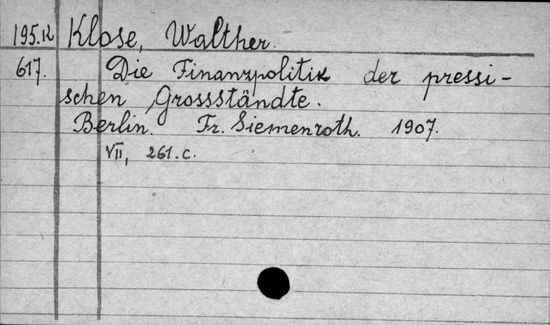 195.K Klose, Walther.
617. Die Finanzpolitik der pressi-
schen Grossständte.
Berlin. Fr. Siemenroth. 1907.
VII, 261.c.